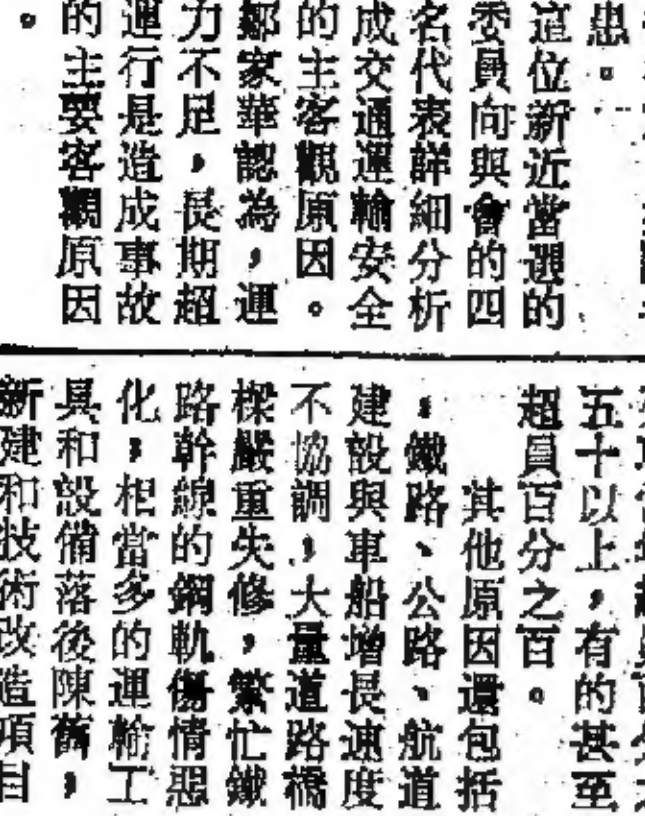 患。
這位新近當選的
委員向與會的四
名代表詳細分析
成交通運輸安全
的主客觀原因。
鄒家華認為，運
力不足，長期超
運行是造成事故
的主要客觀原因
。
五十以上，有的甚至
超員百分之百。
其他原因還包括
，鐵路、公路、航道
建設與車船增長速度
不協調，大量道路橋
樑嚴重失修，繁忙鐵
路幹線的鋼軌傷情惡
化，相當多的運輸工
具和設備落後陳舊，
新建和技術改造項目